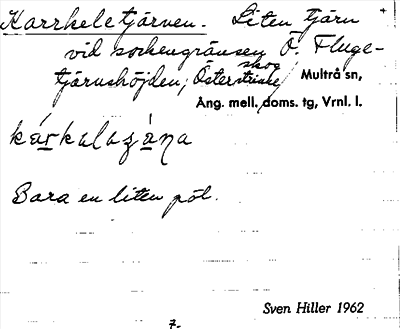 Karrkeletjärven. Liten tjärn
vid sockengränsen Ö. Fluge-
skog
tjärnshöjden; Öster Multrå sn,
Ång. mell. doms. tg, Vrnl. l.
Bara en liten pöl.
Sven Hiller 1962
7.